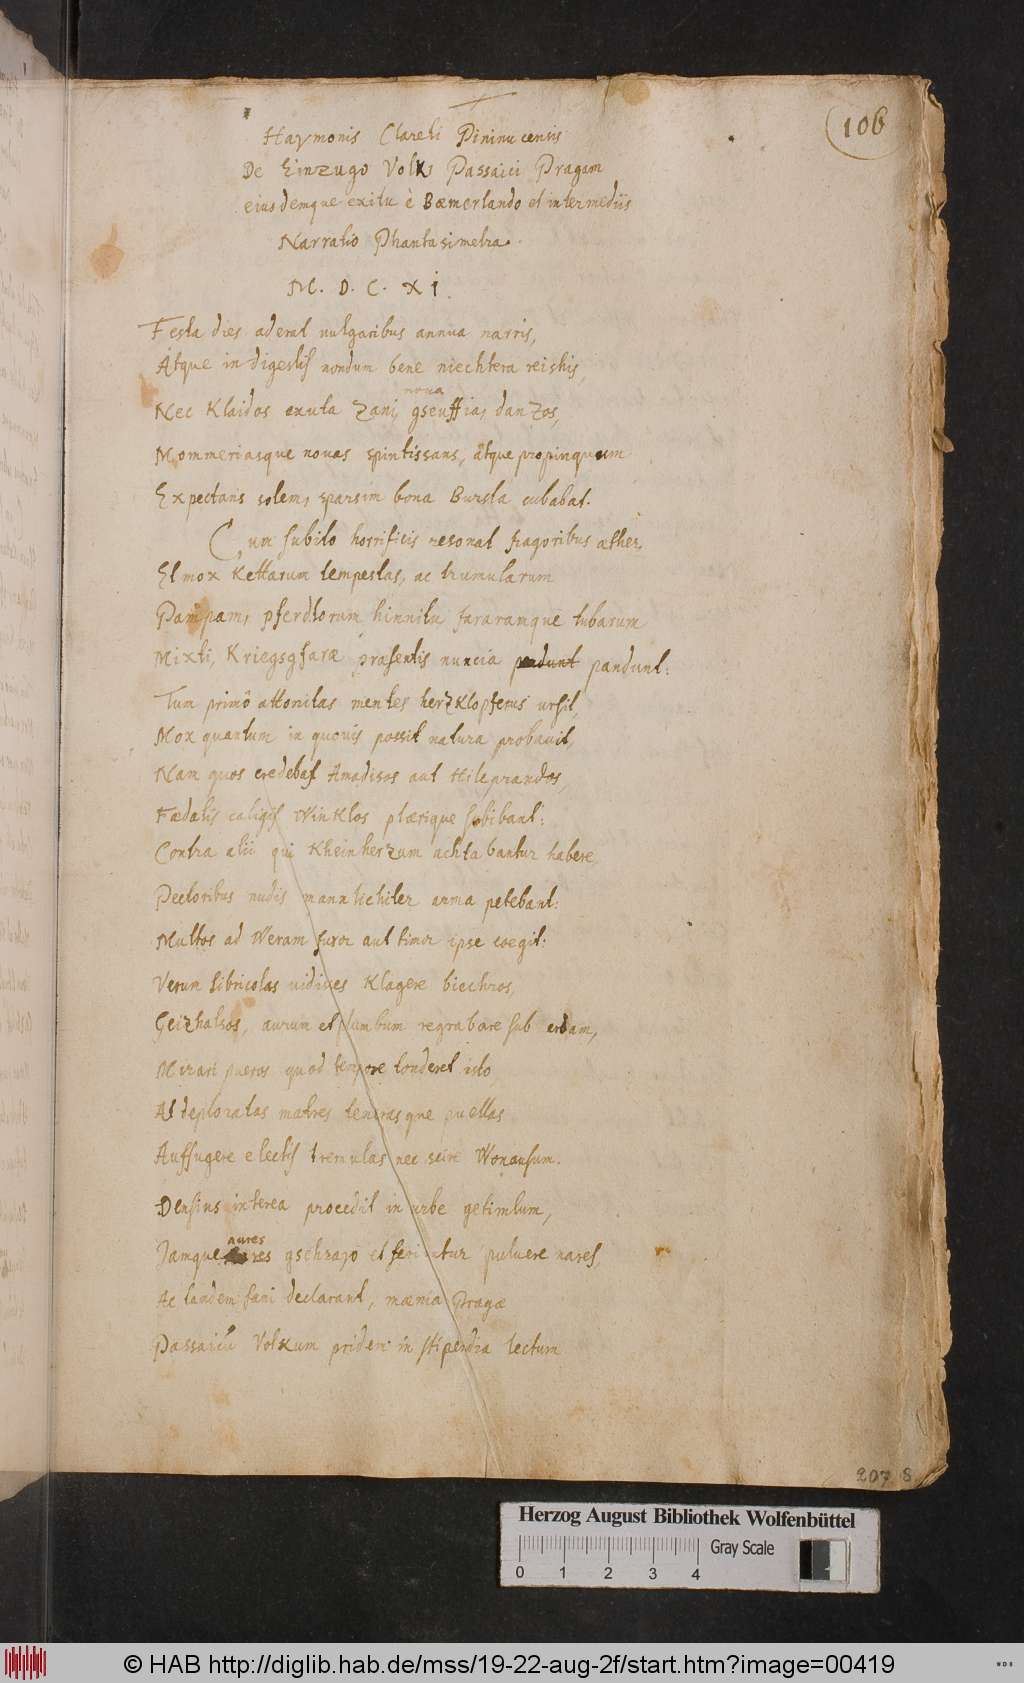 106
Haymonis Clareti Pininucensis
De Einzugo Volks Passaici Pragam
eiusdemque exitu è Bœmerlando et intermediis
Narratio Phantasimetra.
M. D. C. XI.
Festa dies aderat vulgaribus annua narris,
Atque in digestis nondum bene niechtera reischis,
Nec Klaidos exuta Zani, noua gseuffia, danzos,
Mommeriasque nouas spintissans, atque propinquum
Expectans solem, sparsim bona Bursta cubabat.
Cum subito horrificis resonat fragoribus æther,
Et mox Kettarum tempestas, ac trumularum
Pampam, pferdtorum hinnitu fararamque tubarum
Mixti, Kriegsgfaræ præsentis nuncia pandunt pandunt:
Tum primò attonitas mentes herzklopferus ursit,
Mox quantum in quouis possit natura probauit,
Nam quos credebas Amadisos aut Hileprandos,
Fædatis caligis Winklos plærique subibant:
Contra alii qui Kheinherzum achtabantur habere,
Pectoribus nudis mannlichiter arma petebant:
Multos ad Weram furor aut timor ipse coegit:
Verum libricolas uidisses Klagere biechros,
Geizhalsos, aurum et plumbum regrabare sub erdam,
Mirari pueros quod tempore tonderet isto,
At deploratas matres tenerasque puellas
Auffugere electis tremulas nec scire Wonausum.
Densius interea procedit in urbe getimlum,
Jamque aures gschrajo et feriuntur puluere nares,
Ac tandem fani declarant, mœnia Pragæ
Passaicu Volkum pridem in stipendia lectum
207 8
Herzog August Bibliothek Wolfenbüttel
Gray Scale
0 1 2 3 4
© HAB http://diglib.hab.de/mss/19-22-aug-2f/start.htm?image=00419